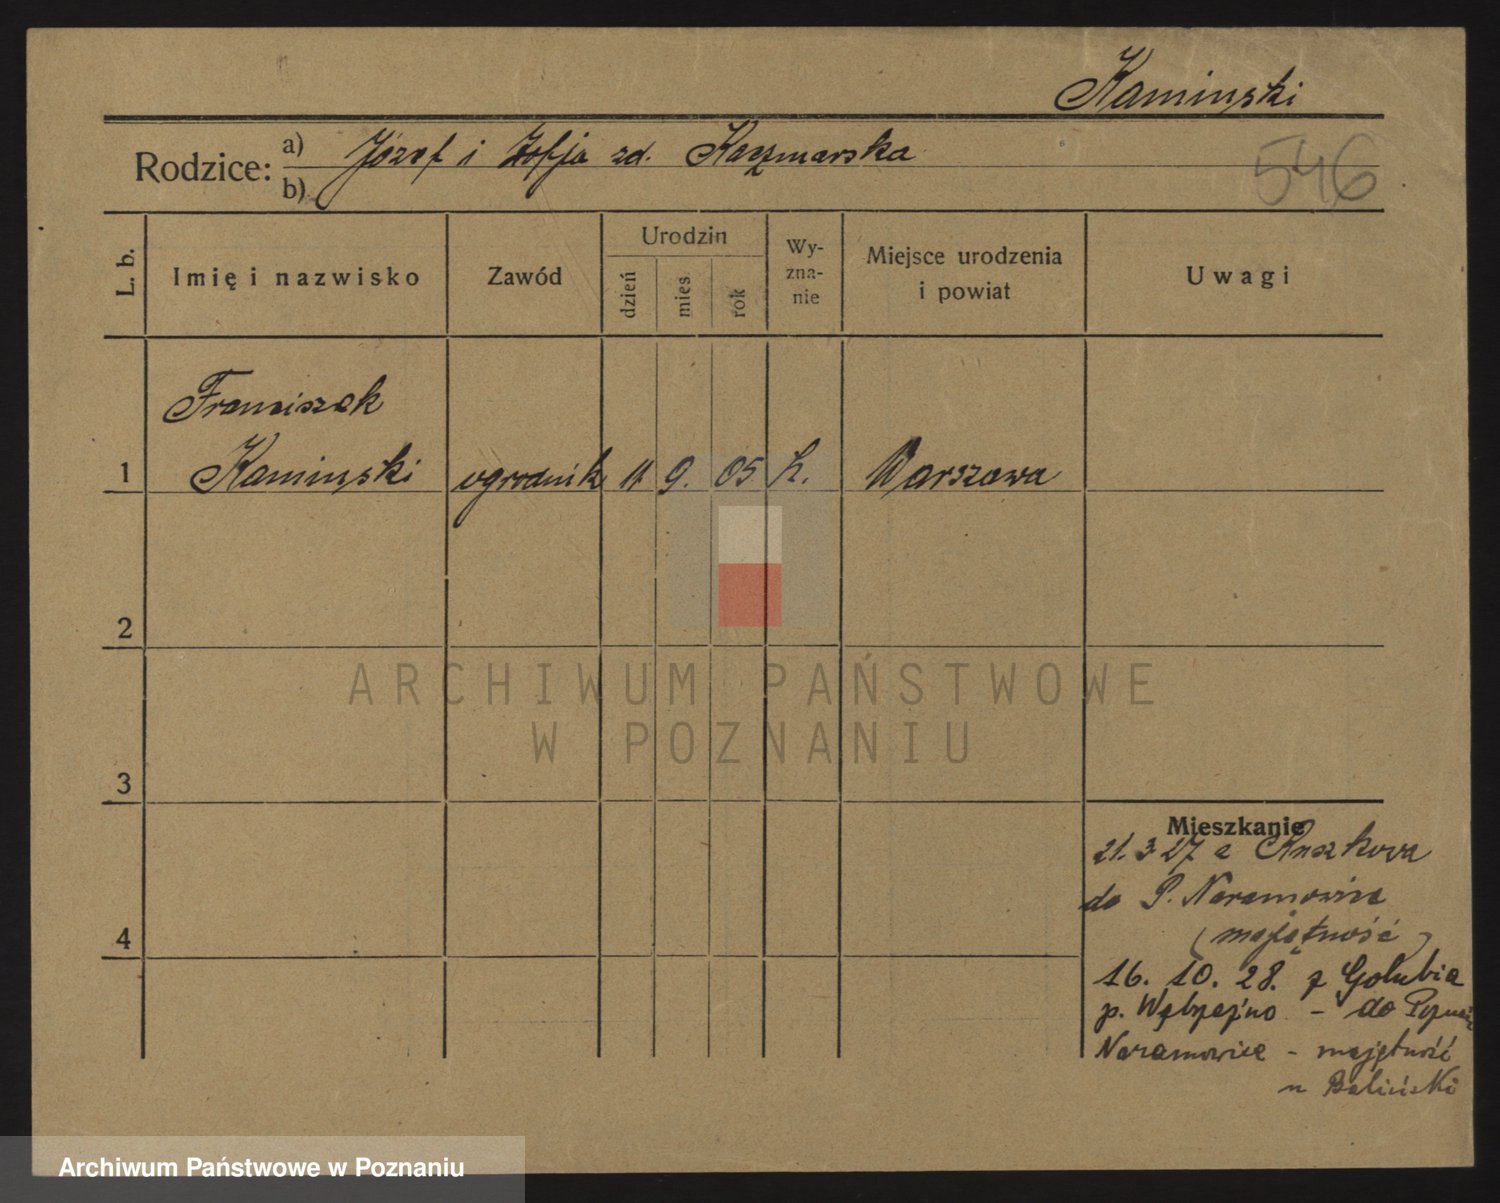 Kaminski
Rodzice: a) Józef i Zofja zd. Kaczmarska
b)
546
L. b.
Imię i nazwisko
Zawód
Urodzin
dzień
mies.
rok
Wy-
zna-
nie
Miejsce urodzenia
i powiat
Uwagi
Franciszek
1 Kaminski ogrodnik 11 9. 05 k. Warszawa
2
ARCHIWUM PAŃSTWOWE
W POZNANIU
3
Mieszkanie
21. 3 27 z
do P. Naramowice
(majętność)
4
16. 10. 28. z Golubia
p. Wąbrzeźno - do
Naramowice - majętność
Archiwum Państwowe w Poznaniu